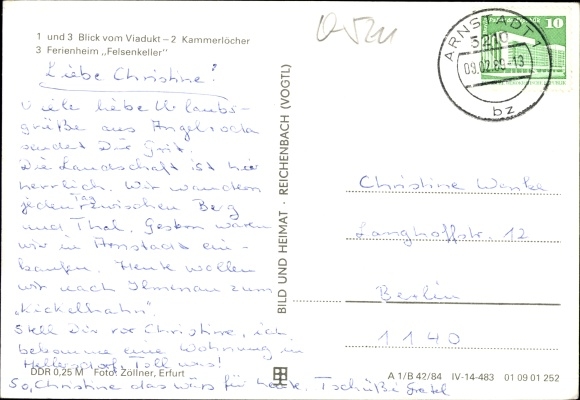 1 und 3 Blick vom Viadukt – 2 Kammerlöcher
3 Ferienheim „Felsenkeller“
Liebe Christine!
Viele liebe Urlaubs-
grüße aus Angelroda
sendet Dir Grit.
Die Landschaft ist hier
herrlich. Wir wandern
jeden Tag zwischen Berg
und Thal. Gestern waren
wir in Arnstadt ein-
kaufen. Heute wollen
wir nach Ilmenau zum
„Kickelhahn“.
Stell Dir vor Christine, ich
bekomme eine Wohnung in
Hellersdorf. Toll was!
So, Christine das wärs für heute. Tschüßi
DDR 0,25 M Foto: Zöllner, Erfurt
BILD UND HEIMAT · REICHENBACH (VOGTL)
A 1/B 42/84 IV-14-483 01 09 01 252
ARNSTADT 1
5210
09.02.89-13
bz
10
Christine
Langhoffstr. 12
Berlin
1140